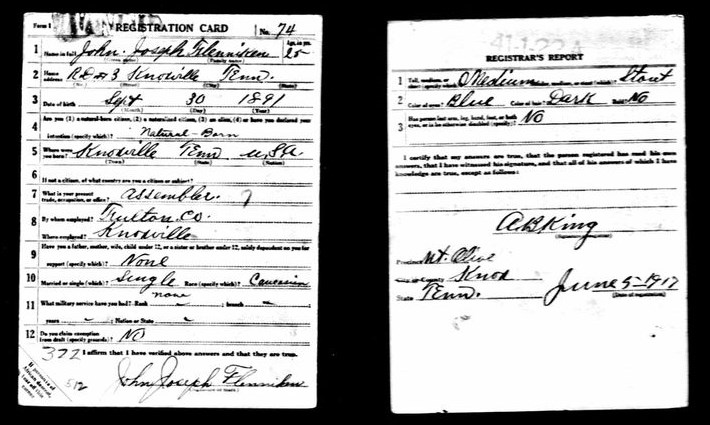 Form 1 REGISTRATION CARD No. 74
1 Name in full John Joseph Flenniken Age, in yrs. 25
(Given name) (Family name)
2 Home address R D # 3 Knoxville Tenn.
(No.) (Street) (City) (State)
3 Date of birth Sept 30 1891
(Month) (Day) (Year)
4 Are you (1) a natural-born citizen, (2) a naturalized citizen, (3) an alien, (4) or have you declared your
intention (specify which)? Natural-Born
5 Where were you born? Knoxville Tenn U.S.A.
(Town) (State) (Nation)
6 If not a citizen, of what country are you a citizen or subject?
7 What is your present trade, occupation, or office? assembler
8 By whom employed? Co.
Where employed? Knoxville
9 Have you a father, mother, wife, child under 12, or a sister or brother under 12, solely dependent on you for
support (specify which)? None
10 Married or single (which)? Single Race (specify which)? Caucasian
11 What military service have you had? Rank none ; branch -
years - ; Nation or State -
12 Do you claim exemption from draft (specify grounds)? No
372 I affirm that I have verified above answers and that they are true.
512
John Joseph Flenniken
If person is of African descent, tear off this corner
REGISTRAR'S REPORT
1 Tall, medium, or short (specify which)? Medium Slender, medium, or stout (which)? Stout
2 Color of eyes? Blue Color of hair? Dark Bald? No
3 Has person lost arm, leg, hand, foot, or both eyes, or is he otherwise disabled (specify)? No
I certify that my answers are true, that the person registered has read his own
answers, that I have witnessed his signature, and that all of his answers of which I
have knowledge are true, except as follows:
A B King
(Signature of registrar)
Precinct Mt. Olive
City or County Knox
State Tenn. June 5-1917
(Date of registration)